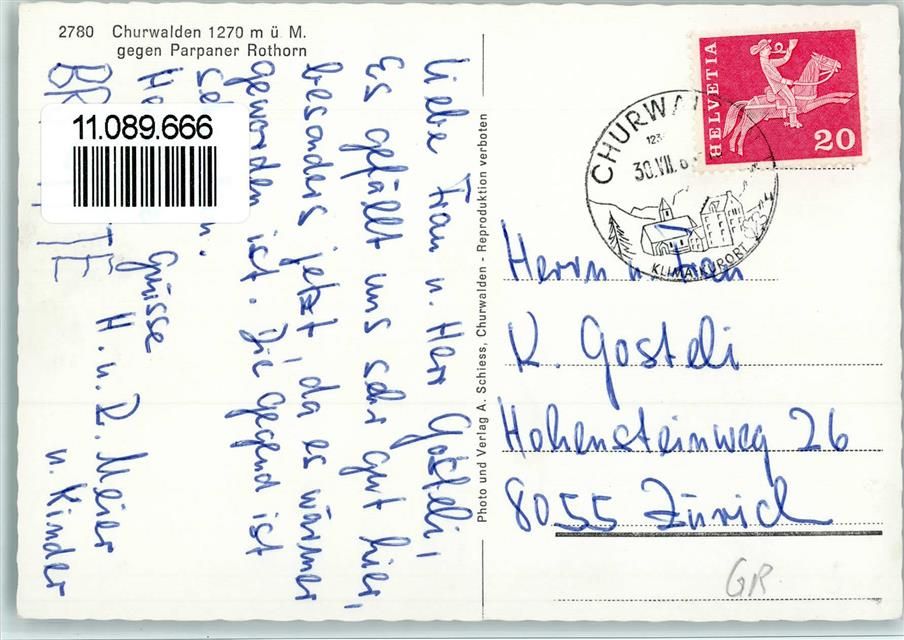 2780 Churwalden 1270 m ü. M.
gegen Parpaner Rothorn
Liebe Frau u. Herr Gosteli,
Es gefällt uns sehr gut hier,
besonders jetzt, da es wärmer
geworden ist. Die Gegend ist
Grüsse
H. u. R. Meier
u. Kinder
11.089.666
Photo und Verlag A. Schiess, Churwalden - Reproduktion verboten
HELVETIA
20
30.VII.6
KLIMAKURORT
Herrn u. Frau
K. Gosteli
Hohensteinweg 26
8055 Zürich
GR